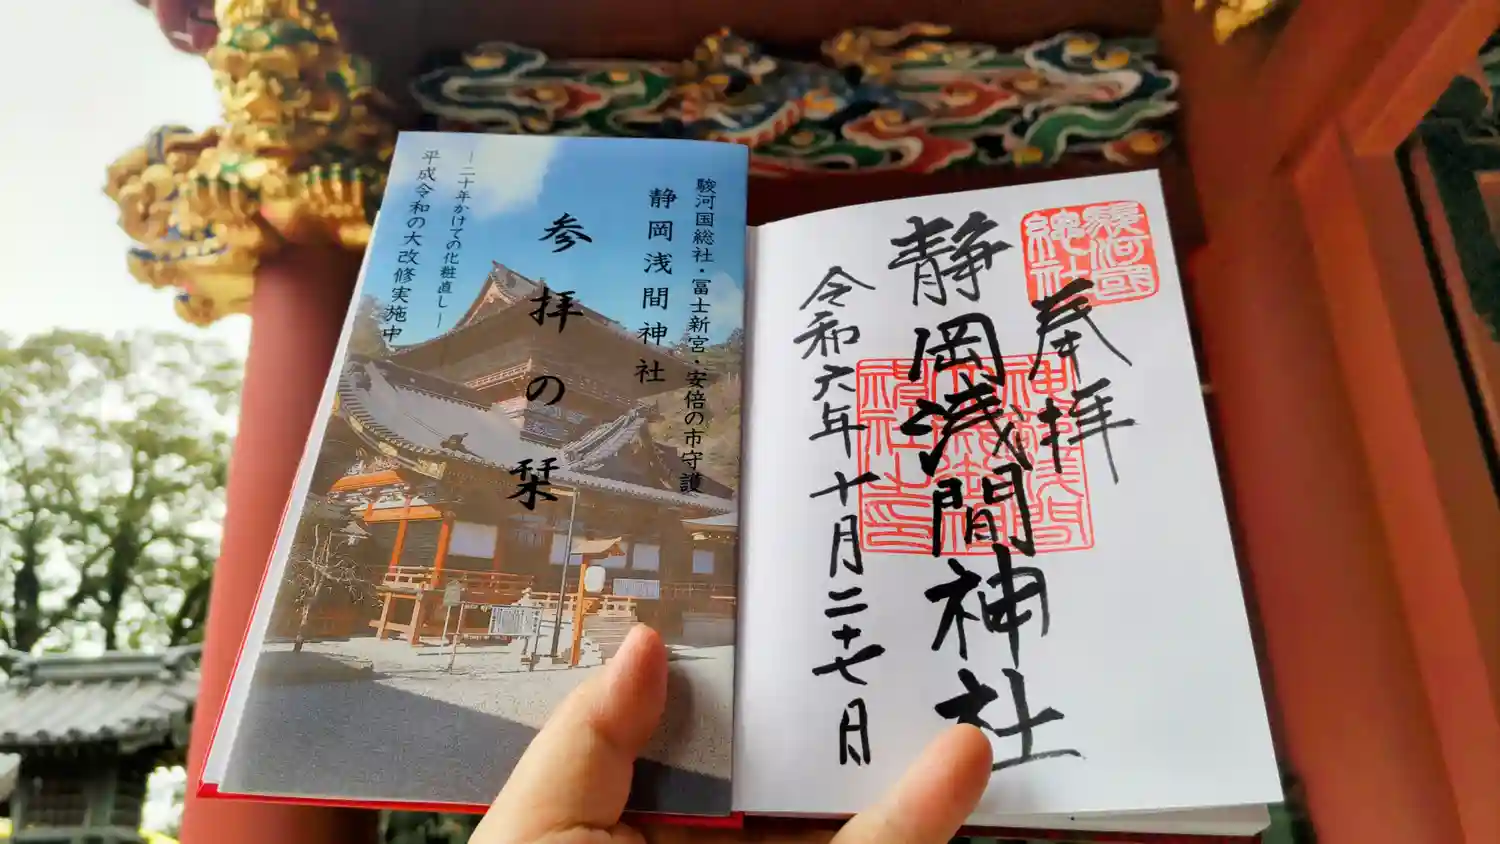 駿河国総社・冨士新宮・安倍の市守護
静岡浅間神社
参拝の栞
―二十年かけての化粧直し―
平成令和の大改修実施中
駿河國
総社
奉拝
静岡浅間神社
令和六年十月二十七日